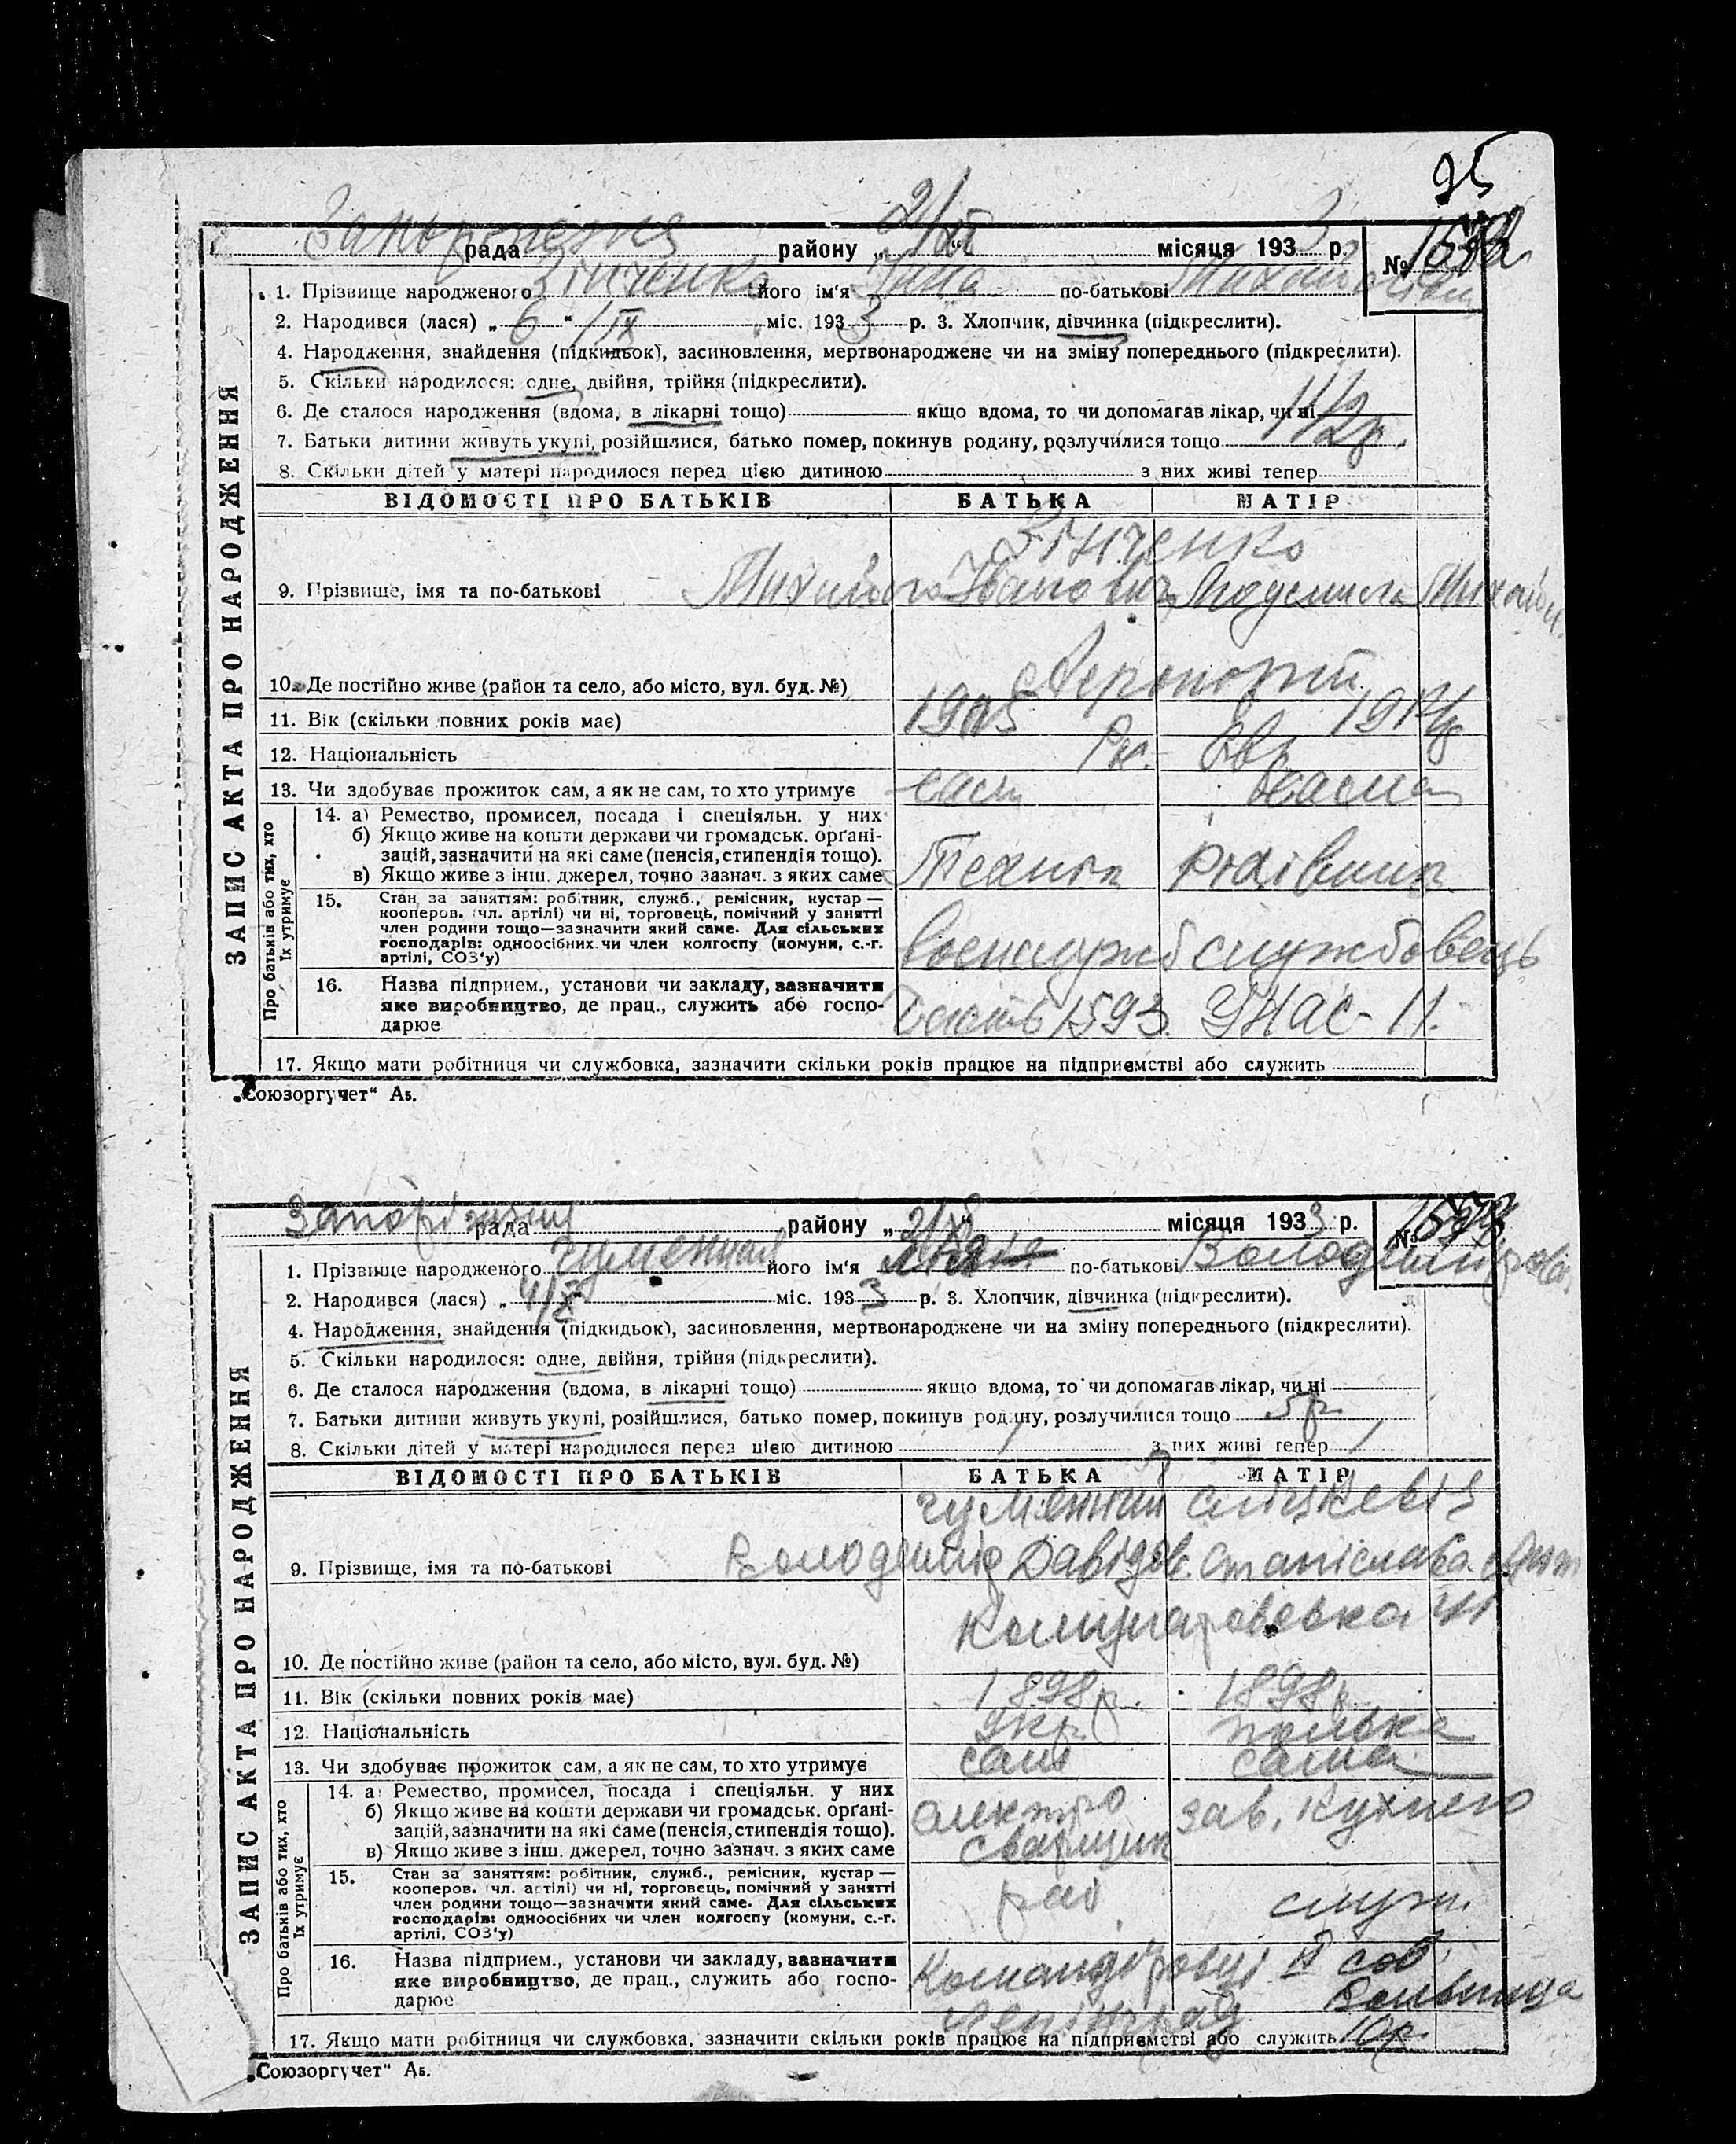 95
рада району „2/XI“ місяця 1933 р. №
1. Прізвище народженого Зінченко його ім'я Інна по-батькові
2. Народився (лася) „6“ /IX міс. 1933 р. 3. Хлопчик, дівчинка (підкреслити).
4. Народження, знайдення (підкидьок), засиновлення, мертвонароджене чи на зміну попереднього (підкреслити).
5. Скільки народилося: одне, двійня, трійня (підкреслити).
6. Де сталося народження (вдома, в лікарні тощо) якщо вдома, то чи допомагав лікар, чи ні
7. Батьки дитини живуть укупі, розійшлися, батько помер, покинув родину, розлучилися тощо 1 1/2 р.
8. Скільки дітей у матері народилося перед цією дитиною з них живі тепер
ВІДОМОСТІ ПРО БАТЬКІВ БАТЬКА МАТІР
Зінченко
9. Прізвище, імя та по-батькові Михайло Іванович Людмила Михайл.
10. Де постійно живе (район та село, або місто, вул. буд. №) Аеропорт
11. Вік (скільки повних років має) 1905
12. Національність Євр.
13. Чи здобуває прожиток сам, а як не сам, то хто утримує сам сама
ЗАПИС АКТА ПРО НАРОДЖЕННЯ
Про батьків або тих, хто їх утримує
14. а) Ремество, промисел, посада і спеціяльн. у них
б) Якщо живе на кошти держави чи громадськ. орґані-
зацій, зазначити на які саме (пенсія, стипендія тощо).
в) Якщо живе з інш. джерел, точно зазнач. з яких саме
Технік рахівник
15. Стан за заняттям: робітник, служб., ремісник, кустар —
кооперов. (чл. артілі) чи ні, торговець, помічний у занятті
член родини тощо—зазначити який саме. Для сільських
господарів: одноосібних чи член колгоспу (комуни, с.-г.
артілі, СОЗ'у)
военслужб службовець
16. Назва підприєм., установи чи закладу, зазначити
яке виробництво, де прац., служить або госпо-
дарює
Часть 1593.
17. Якщо мати робітниця чи службовка, зазначити скільки років працює на підприємстві або служить
„Союзоргучет“ Аб.
Запоріжжя рада району „ місяця 1933 р. №
1. Прізвище народженого його ім'я по-батькові Володимировн.
2. Народився (лася) „4/X“ міс. 1933 р. 3. Хлопчик, дівчинка (підкреслити).
4. Народження, знайдення (підкидьок), засиновлення, мертвонароджене чи на зміну попереднього (підкреслити).
5. Скільки народилося: одне, двійня, трійня (підкреслити).
6. Де сталося народження (вдома, в лікарні тощо) якщо вдома, то чи допомагав лікар, чи ні
7. Батьки дитини живуть укупі, розійшлися, батько помер, покинув родину, розлучилися тощо 5 р.
8. Скільки дітей у матері народилося перед цією дитиною 1 з них живі тепер 1
ВІДОМОСТІ ПРО БАТЬКІВ БАТЬКА МАТІР
9. Прізвище, імя та по-батькові Володимір Давідов. Станіслава
10. Де постійно живе (район та село, або місто, вул. буд. №) Комунаровська
11. Вік (скільки повних років має) 1898 р. 1898 р.
12. Національність Укр. полька
13. Чи здобуває прожиток сам, а як не сам, то хто утримує сам сама
ЗАПИС АКТА ПРО НАРОДЖЕННЯ
Про батьків або тих, хто їх утримує
14. а) Ремество, промисел, посада і спеціяльн. у них
б) Якщо живе на кошти держави чи громадськ. орґані-
зацій, зазначити на які саме (пенсія, стипендія тощо).
в) Якщо живе з інш. джерел, точно зазнач. з яких саме
електро зав. кухнею
сварщик
15. Стан за заняттям: робітник, служб., ремісник, кустар —
кооперов. (чл. артілі) чи ні, торговець, помічний у занятті
член родини тощо—зазначити який саме. Для сільських
господарів: одноосібних чи член колгоспу (комуни, с.-г.
артілі, СОЗ'у)
роб. служ.
16. Назва підприєм., установи чи закладу, зазначити
яке виробництво, де прац., служить або госпо-
дарює
Командіровці II сов.
Ленінград больница
17. Якщо мати робітниця чи службовка, зазначити скільки років працює на підприємстві або служить 10 р.
„Союзоргучет“ Аб.